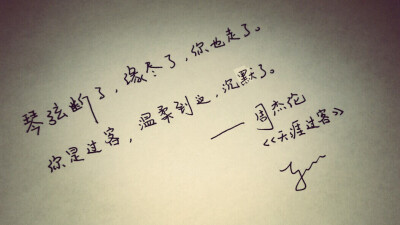 琴弦断了，缘尽了，你也走了。
你是过客，温柔到这，沉默了。
——周杰伦
《天涯过客》